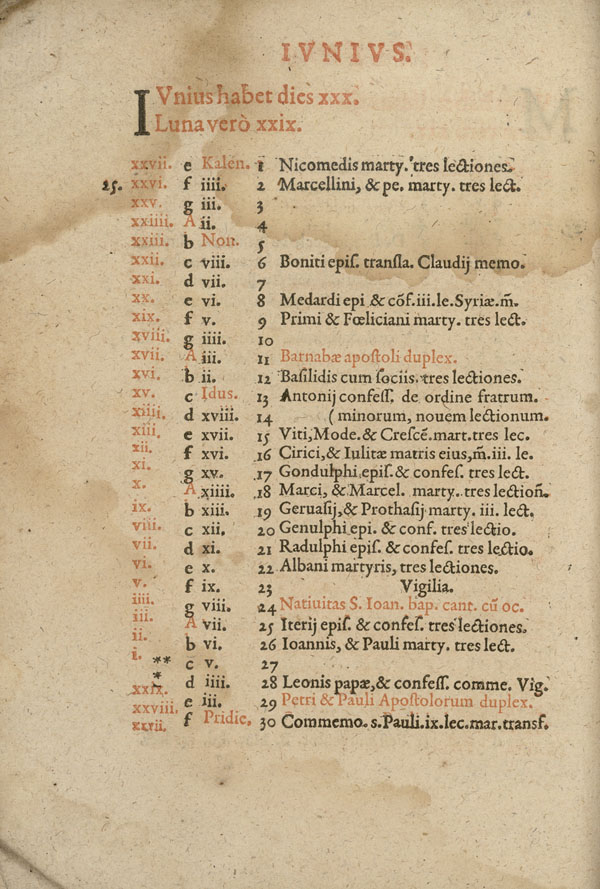 IVNIVS.
IVnius habet dies xxx.
Luna verò xxix.
xxvii. e Kalen. 1 Nicomedis marty. tres lectiones.
25. xxvi. f iiii. 2 Marcellini, & pe. marty. tres lect.
xxv. g iii. 3
xxiiii. A ii. 4
xxiii. b Non. 5
xxii. c viii. 6 Boniti epis. transla. Claudij memo.
xxi. d vii. 7
xx. e vi. 8 Medardi epi & cõf. iii. le. Syriæ. m̃.
xix. f v. 9 Primi & Fœliciani marty. tres lect.
xviii. g iiii. 10
xvii. A iii. 11 Barnabæ apostoli duplex.
xvi. b ii. 12 Basilidis cum sociis. tres lectiones.
xv. c Idus. 13 Antonij confess. de ordine fratrum.
xiiii. d xviii. 14 (minorum, nouem lectionum.
xiii. e xvii. 15 Viti, Mode. & Crescẽ. mart. tres lec.
xii. f xvi. 16 Cirici, & Iulitæ matris eius, m̃. iii. le.
xi. g xv. 17 Gondulphi epis. & confes. tres lect.
x. A xiiii. 18 Marci, & Marcel. marty. tres lectioñ.
ix. b xiii. 19 Geruasij, & Prothasij marty. iii. lect.
viii. c xii. 20 Genulphi epi. & conf. tres lectio.
vii. d xi. 21 Radulphi epis. & confes. tres lectio.
vi. e x. 22 Albani martyris, tres lectiones.
v. f ix. 23 Vigilia.
iiii. g viii. 24 Natiuitas S. Ioan. bap. cant. cũ oc.
iii. A vii. 25 Iterij epis. & confes. tres lectiones.
ii. b vi. 26 Ioannis, & Pauli marty. tres lect.
i. ** c v. 27
* d iiii. 28 Leonis papæ, & confess. comme. Vig.
xxix. e iii. 29 Petri & Pauli Apostolorum duplex.
xxviii. f Pridie. 30 Commemo. s. Pauli. ix. lec. mar. transf.
xxvii.